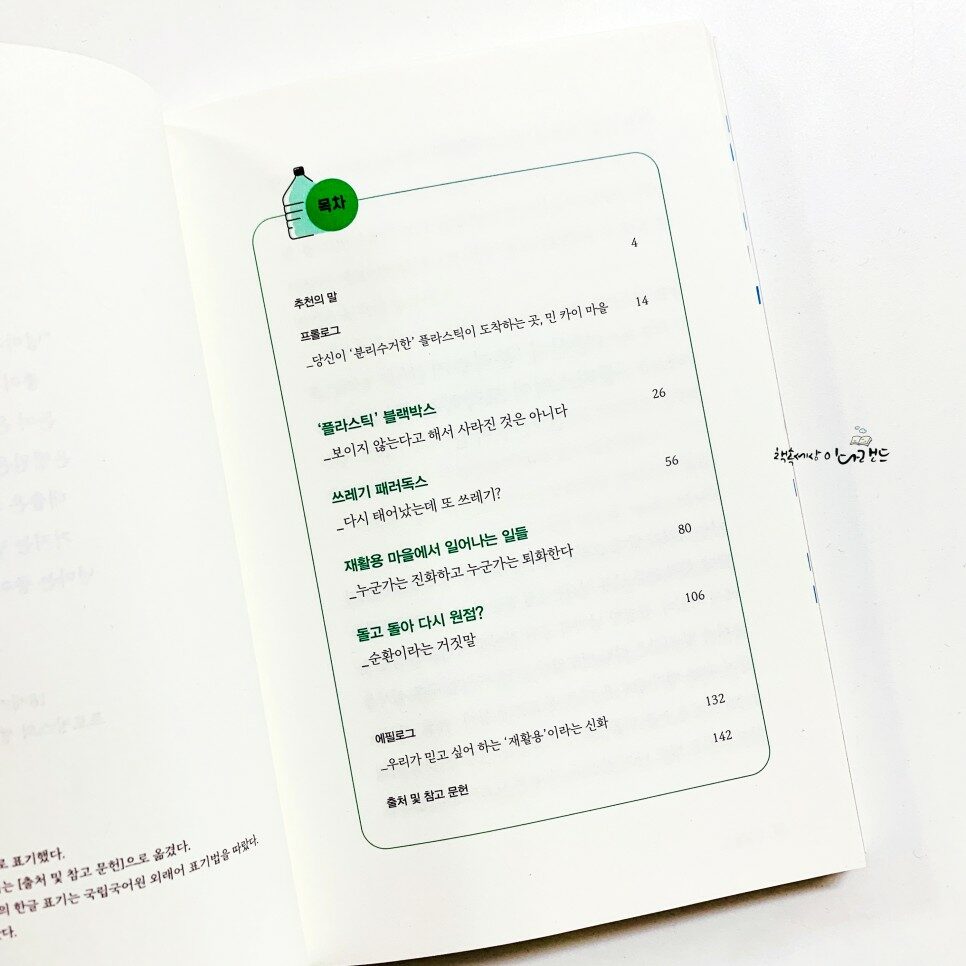 목차
추천의 말 4
프롤로그
_당신이 ‘분리수거한’ 플라스틱이 도착하는 곳, 민 카이 마을 14
‘플라스틱’ 블랙박스
_보이지 않는다고 해서 사라진 것은 아니다 26
쓰레기 패러독스
_다시 태어났는데 또 쓰레기? 56
재활용 마을에서 일어나는 일들
_누군가는 진화하고 누군가는 퇴화한다 80
돌고 돌아 다시 원점?
_순환이라는 거짓말 106
에필로그
_우리가 믿고 싶어 하는 ‘재활용’이라는 신화 132
출처 및 참고 문헌 142
로 표기했다.
는 [출처 및 참고 문헌]으로 옮겼다.
의 한글 표기는 국립국어원 외래어 표기법을 따랐다.
다.
책속세상